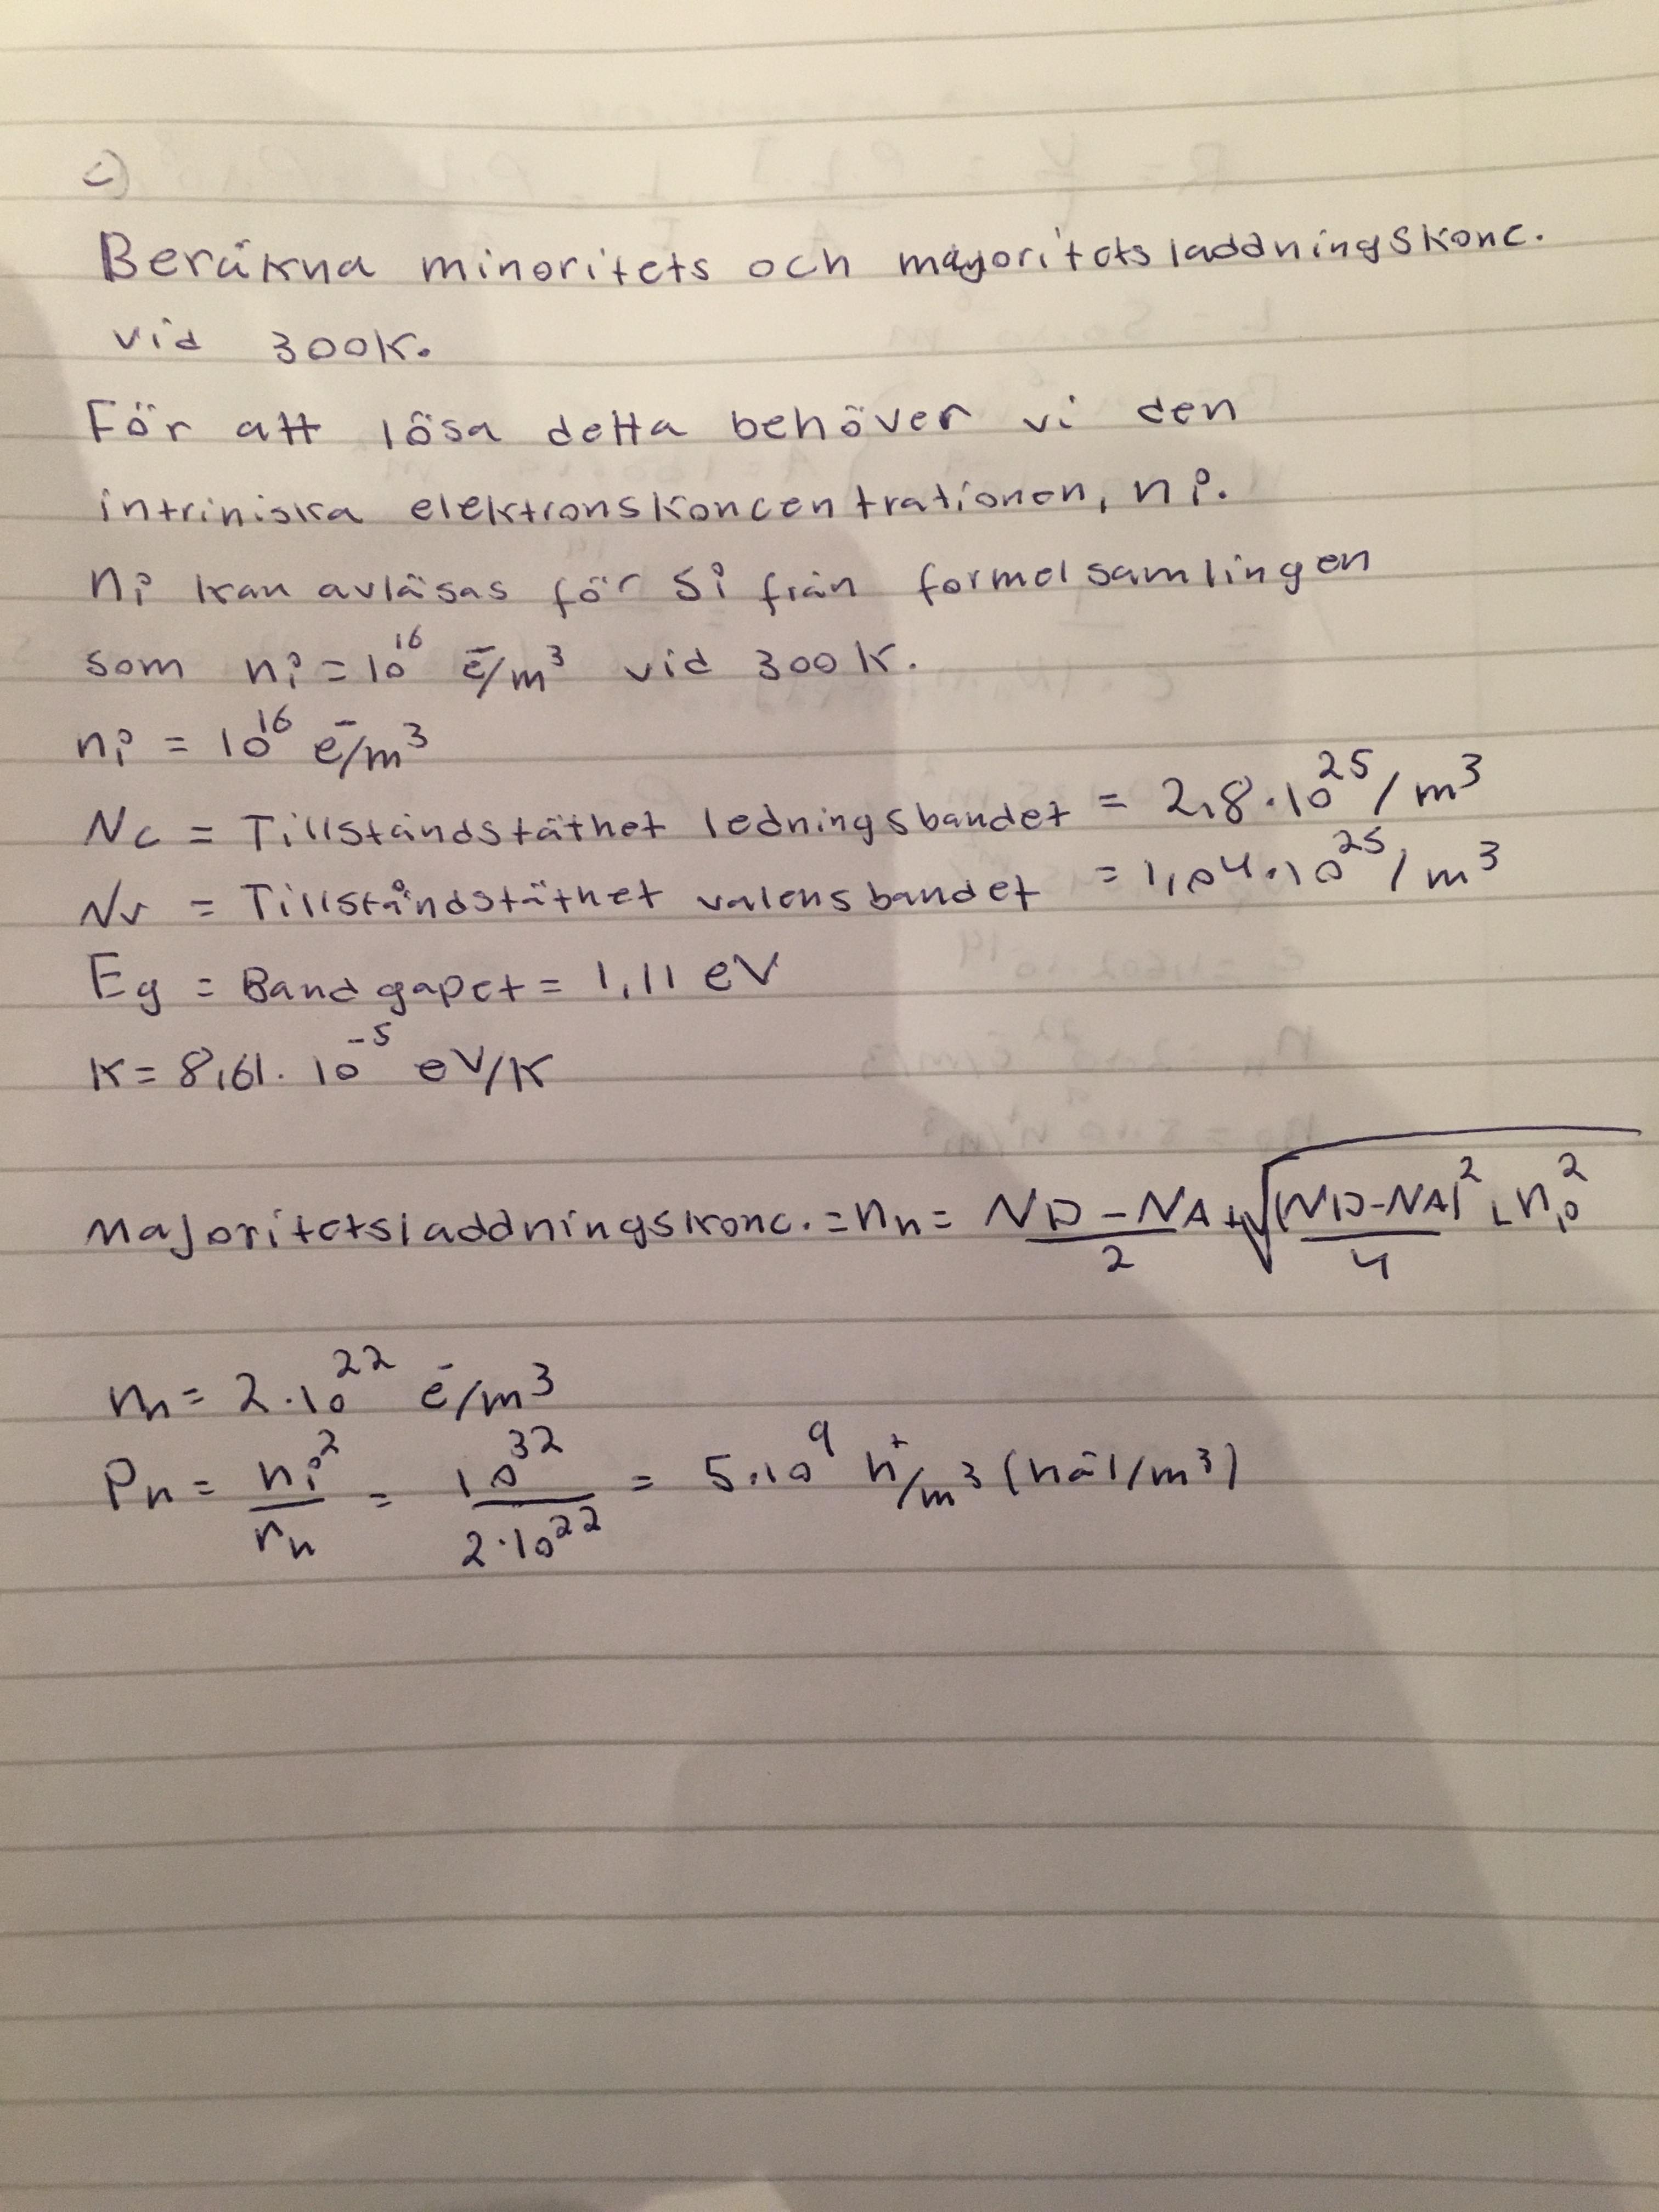 c)
Beräkna minoritets och majoritetsladdningskonc.
vid 300K.
För att lösa detta behöver vi den
intriniska elektronskoncentrationen, ni.
ni kan avläsas för Si från formelsamlingen
som ni = 10^16 e⁻/m³ vid 300K.
ni = 10^16 e⁻/m³
Nc = Tillståndstäthet ledningsbandet = 2,8·10^25/m³
Nv = Tillståndstäthet valensbandet = 1,04·10^25/m³
Eg = Bandgapet = 1,11 eV
K = 8,61·10^-5 eV/K
Majoritetsladdningskonc. = nn = (ND-NA)/2 + √((ND-NA)²/4 + ni²)
nn = 2·10^22 e⁻/m³
Pn = ni²/nn = 10^32/(2·10^22) = 5·10^9 h⁺/m³ (hål/m³)